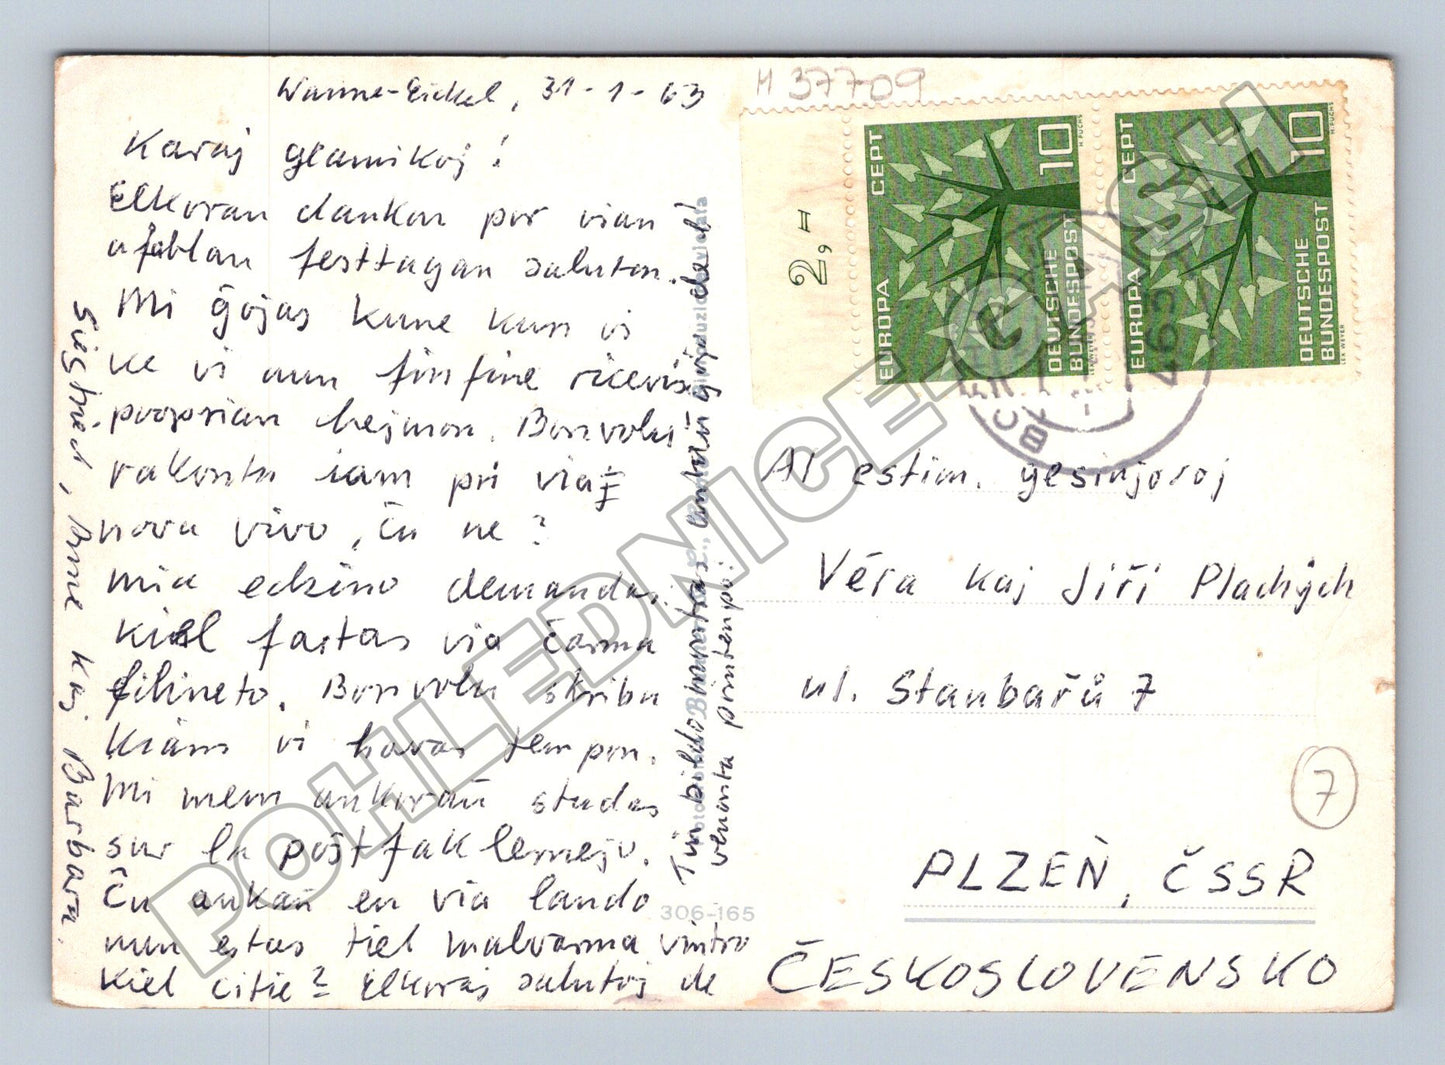 Wanne-Eickel, 31-1-63
Karaj geamikoj!
Elkoran dankon por vian
afablan festtagan saluton.
Mi ĝojas kune kun vi
ke vi nun finfine ricevis
proprian hejmon. Bonvolu
rakonti iam pri viaj
nova vivo, ĉu ne?
Mia edzino demandas,
kiel fartas via ĉarma
filineto. Bonvolu skribu
kiam vi havas tempon.
Mi mem ankoraŭ studas
sur la poŝtfaklernejo.
Ĉu ankaŭ en via lando
nun estas tiel malvarma vintro
kiel ĉi tie? Elkoraj salutoj de
Siegfried, Anne kaj Barbara.
Tiun bildo montras, antaŭ
venonta printempo:
306-165
H 37709
2,=
EUROPA CEPT
10
H. FUCHS
DEUTSCHE
BUNDESPOST
EUROPA CEPT
10
H. FUCHS
DEUTSCHE
BUNDESPOST
LEX WEYER
Al estim. gesinjoroj
Věra kaj Jiří Plachých
ul. Stanbařů 7
7
PLZEŇ, ČSSR
ČESKOSLOVENSKO
POHLEDNICE CASH